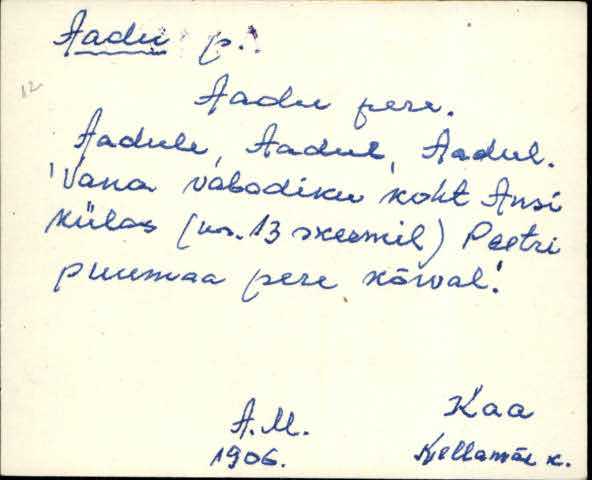 Aadu p.
12
Aadu pere.
Aadule, Aadul, Aadul.
Vana vabadiku koht Ansi
külas (nr. 13 skeemil) Peetri
puumaa pere kõrval.
A.M.
1906.
Kaa
Kellamäe k.